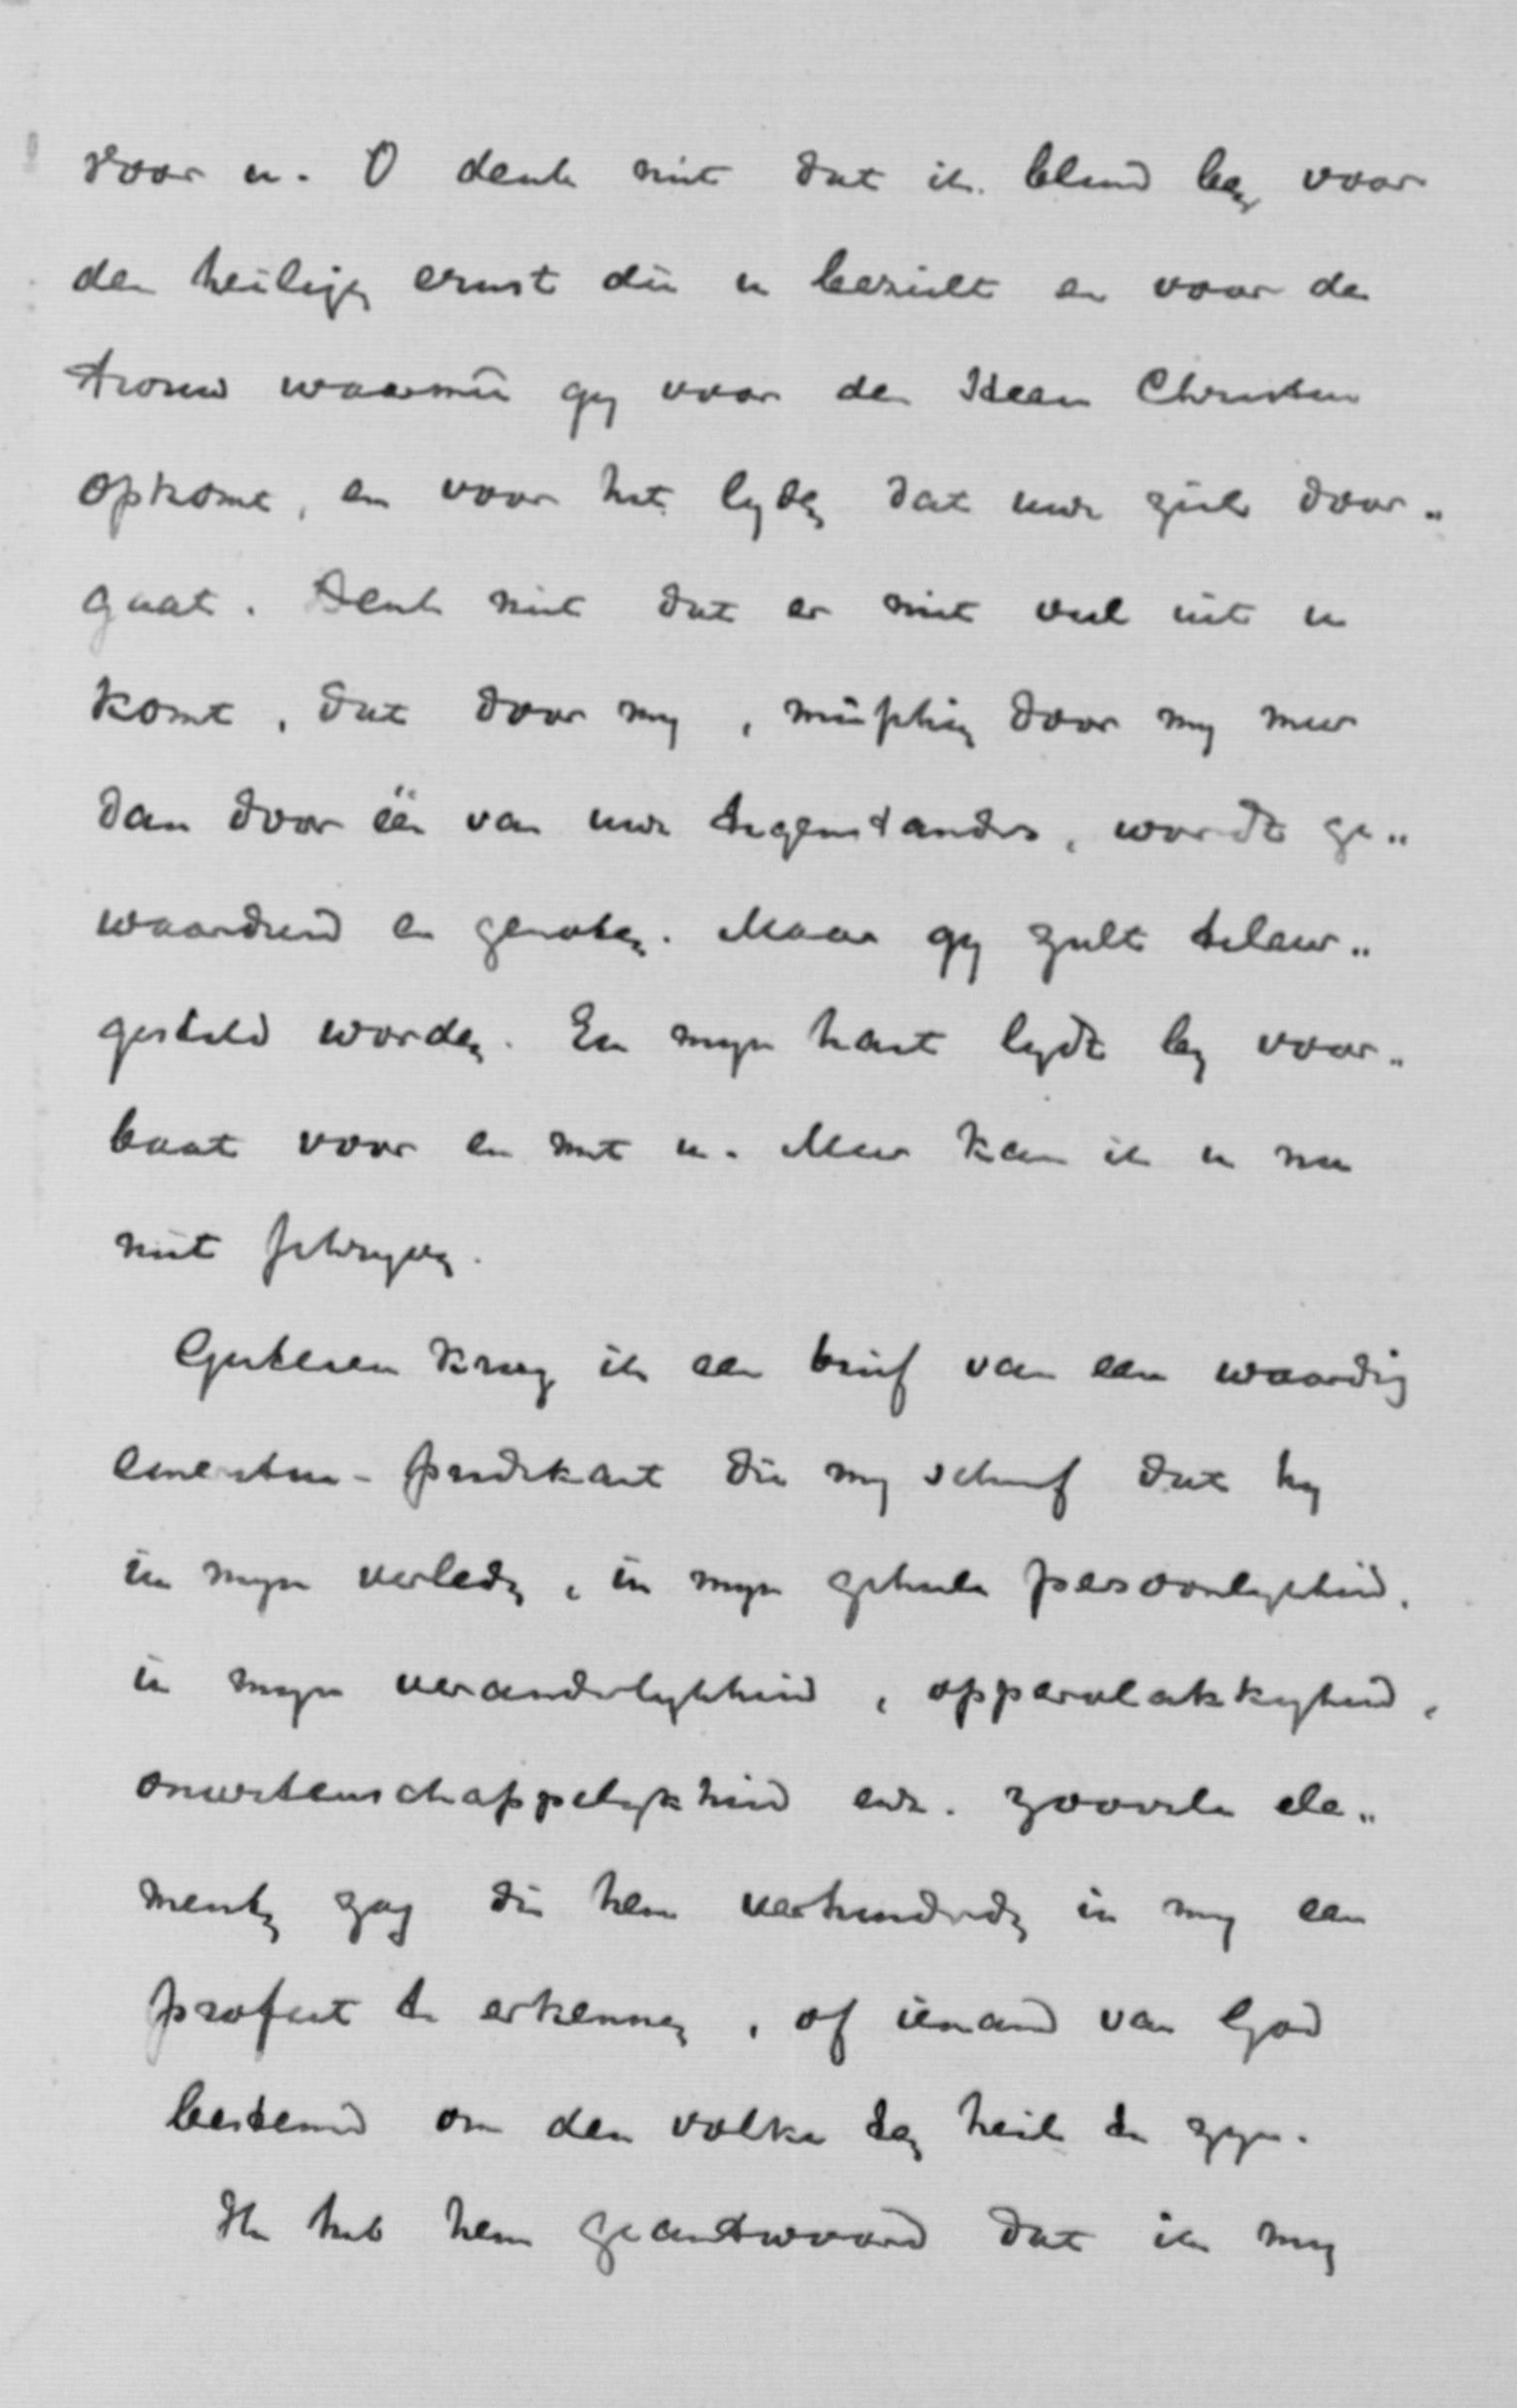 voor u. O denk niet dat ik blind ben voor
den heiligen ernst die u bezielt en voor de
trouw waarmeê gy voor den Heere Christus
opkomt, en voor het lyden dat uwe ziel door„
gaat. Denk niet dat er niet veel uit u
komt, dat door my, misschien door my meer
dan door één van uwe tegenstanders, wordt ge„
waardeerd en genoten. Maar gy zult teleur„
gesteld worden. En myn hart lydt by voor„
baat voor en met u. Meer kan ik u nu
niet schryven.
Gisteren kreeg ik een brief van een waardig
emeritus-predikant die my schreef dat hy
in myn verleden, in myn geheele persoonlykheid,
in myn veranderlykheid, oppervlakkigheid,
onwetenschappelykheid enz. zoovele ele„
menten zag die hem verhinderden in my een
profeet te erkennen, of iemand van God
bestemd om den volke ten heil te zyn.
Ik heb hem geantwoord dat ik my